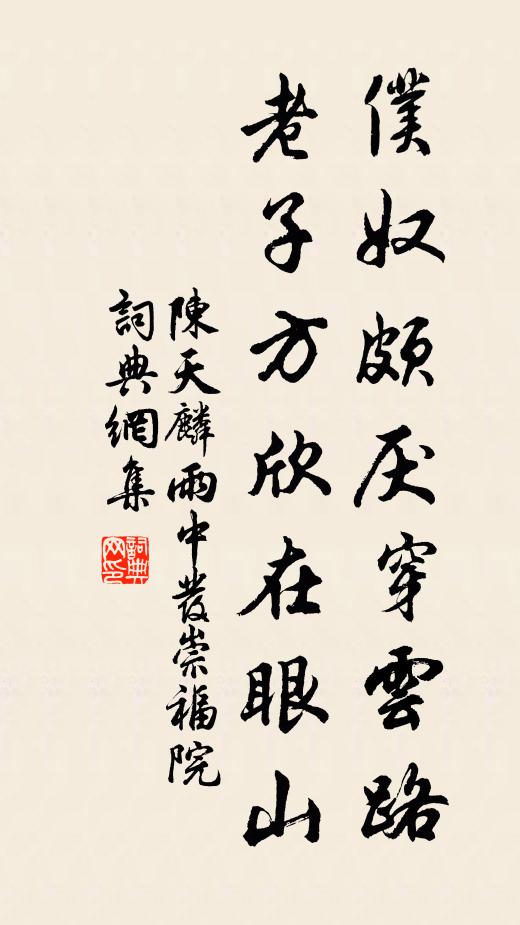 僕奴頗厌穿雲路
老子方欣在眼山
陳天麟雨中發崇福院
詞典網集
詞典
网印